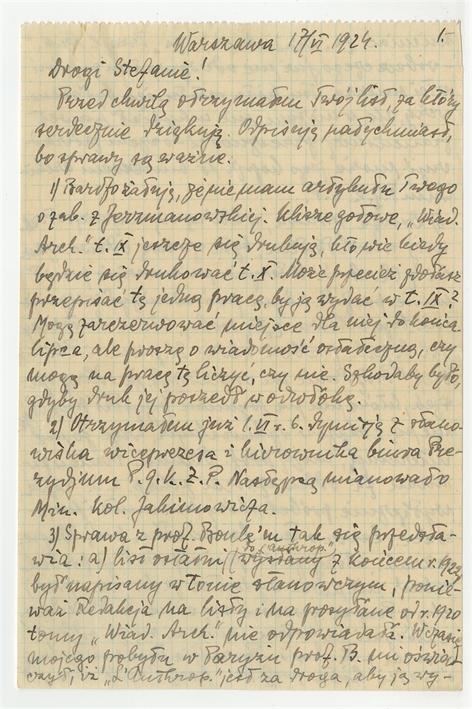 Warszawa 17/VI 1924. 1.-
Drogi Stefanie!
Przed chwilą otrzymałem Twój list, za który
serdecznie dziękuję. Odpisuję natychmiast,
bo sprawy są ważne.
1) Bardzo żałuję, że nie mam artykułu Twego
o zab. z Jerzmanowskiej. Klisze gotowe, „Wiad.
Arch." t. IX jeszcze się drukują, kto wie kiedy
będzie się drukować t. X. Może przecież zdołasz
przepisać tę jedną pracę, by ją wydać w t. IX?
Mogę zarezerwować miejsce dla niej do końca
lipca, ale proszę o wiadomość ostateczną, czy
mogę na pracę tę liczyć, czy nie. Szkodaby było,
gdyby druk jej poszedł w odwłokę.
2) Otrzymałem już 1.VI r. b. dymisję z stano-
wiska wiceprezesa i kierownika biura Pre-
zydjum P.G.K.Z.P. Następcą mianowało
Min. kol. Jakimowicza.
3) Sprawa z prof. Boule'm tak się przedsta-
wia: a) list ostatni do „Anthrop." wysłany z końcem r. 1922
był napisany w tonie stanowczym, ponie-
waż Redakcja na listy i na posyłane od r. 1920
tomy „Wiad. Arch." nie odpowiadała. W czasie
mojego pobytu w Paryżu prof. B. mi oświad-
czył, iż „L'Anthrop." jest za droga, aby ją wy-